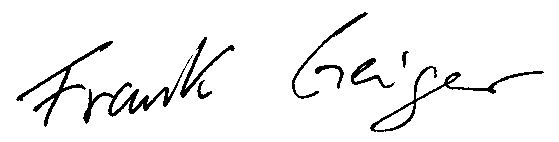 Frank Geiger